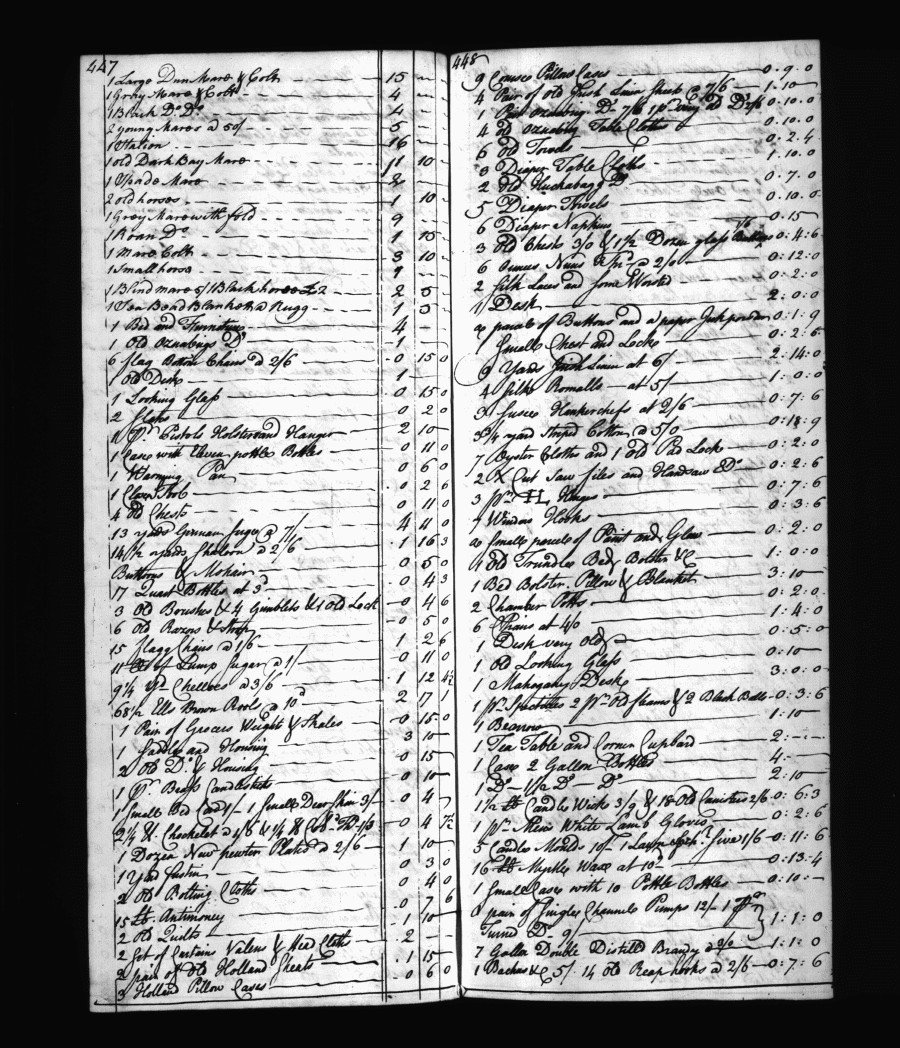 447
1 Large Dun Mare & Colt 15 - -
1 Gray Mare & Colt 4 - -
1 Black Do Do 4 - -
2 young Mares @ 50/ 5 - -
1 Stalion 16 - -
1 old Dark Bay Mare 11 10 -
1 Spade Mare 2 - -
2 old horses 1 10 -
1 Gray Mare with fold 9 - -
1 Roan Do 1 15 -
1 Mare Colt 3 10 -
1 Small horse 1 - -
1 Blind mare 5/ 1 Black horse £2 2 5 -
1 Sea Bead Blanket & a Rugg 1 5 -
1 Bed and Furniture 4 - -
1 Old Oznabugs Do 1 - -
6 flag Bottom Chairs @ 2/6 0 15 0
1 Old Desk 1 - -
1 Looking Glass 0 15 0
2 Slates 0 2 0
1 Pr Pistols Holsters and Hanger 2 10 -
1 Case with Eleven pottle Bottles 0 11 0
1 Warming Pan 0 6 0
1 Close Stool 0 2 6
4 Old Chests 0 11 0
13 yards German Serge @ 7/ 4 11 0
14 1/2 yards Shaloon @ 2/6 1 16 3
Buttons & Mohair 0 5 0
17 Quart Bottles at 3d 0 4 3
3 Old Brushes & 4 Gimblets & 1 Old Lock 0 4 6
6 Old Razors & Strop 0 5 0
15 flagg Chairs @ 1/6 1 2 6
11 lb of Lump Sugar @ 1/ 0 11 0
9 1/4 yds Chelloes @ 3/6 1 12 4 1/2
68 1/2 Ells Brown Rools @ 10d 2 17 1
1 Pair of Grocers Weight & Skales 0 15 0
1 Saddle and Housing 3 10
2 Old Do & Housing 0 15
1 Pr Brass Candlesticks 0 10
1 Small Bed Cord 1/ 1 Small Dear Skin 3/ 0 4
2 1/4 lb Chocholet @ 1/6 & 1/4 lb Cold Thd 1/3 0 4 7 1/2
1 Dozen New pewter Plates @ 2/6 1 10
1 Yard fustin 0 3 0
2 Old Bolting Cloths 0 4 0
15 lb Antimoney 0 7 6
2 Old Quilts 1 10
2 Set of Curtains Valens & Head Cloths 2
2 pair of old Holland Sheats 1 15
3 Holland Pillow Cases 0 6 0
448
9 Course Pillow Cases 0.9.0
4 Pair of old Irish Linen Sheets @ 7/6 1.10
1 Pair Oznabrig Do 7/6 1 pr very old Do 2/6 0.10.0
4 Old Oznabrig Table Cloths 0.10.0
6 Old Towels 0.2.4
3 Diaper Table Cloths 1.10.0
2 Old Huckabagg Do 0.7.0
5 Diaper Towels 0.10.0
6 Diaper Napkins 0.15
3 Old Chests 3/0 & 1 1/2 Dozen glass Bottles 0:4:6
6 Ounces Nuns @ 2/0 0:12:0
2 Silk Laces and some Worsted 0:2:0
1 Desk 2:0:0
a parcele of Buttons and a paper Ink powder 0:1:9
1 Small Chest and Locke 0:2:6
9 Yards Irish Linen at 6/ 2:14:0
4 Silk Romalls at 5/ 1:0:0
3 Susee Hankerchefs at 2/6 0:7:6
3 3/4 yard Striped Cotton @ 5/0 0:18:9
7 Oyster Cloths and 1 old Pad Lock 0:2:0
2 X Cut Saw files and Handsaw Do 0:2:6
3 prs H L Hinges 0:7:6
7 Window Hooks 0:3:6
a Small parcele of Paint and Glew 0:2:0
4 Old Trundles Beds Bolster &c 1:0:0
1 Bed Bolster Pillow & Blanket 3:10
2 Chamber Potts 0:2:0
6 Chairs at 4/0 1:4:0
1 Desk very Old 0:5:0
1 Old Looking Glass 0:10
1 Mahogany Desk 3:0:0
1 pr Spectticles 2 prs Old fleams & 2 Black Balls 0:3:6
1 Bearow 1:10
1 Tea Table and Corner Cupbard 2:-:-
1 Case 2 Gallon Bottles 4:-
1 Do Do Do 2:10
1 1/2 lb Candle Wick 3/9 & 18 Old Canisters 2/6 0:6:3
1 pr Mens White Lamb Gloves 0:2:6
5 Candle Moulds 10/ 1 Lawn Sive 1/6 0:11:6
16 lb Myrtle Wax at 10d 0:13:4
1 Small Case with 10 Pottle Bottles 0:10:-
pair of Single Channele Pumps 12/ 1 pr
Turnd Do 9/ 1:1:0
7 Gallon Double Distilld Brandy @ 3/0 1:1:0
1 Backus &c 5/ 14 Old Reap hooks @ 2/6 0:7:6